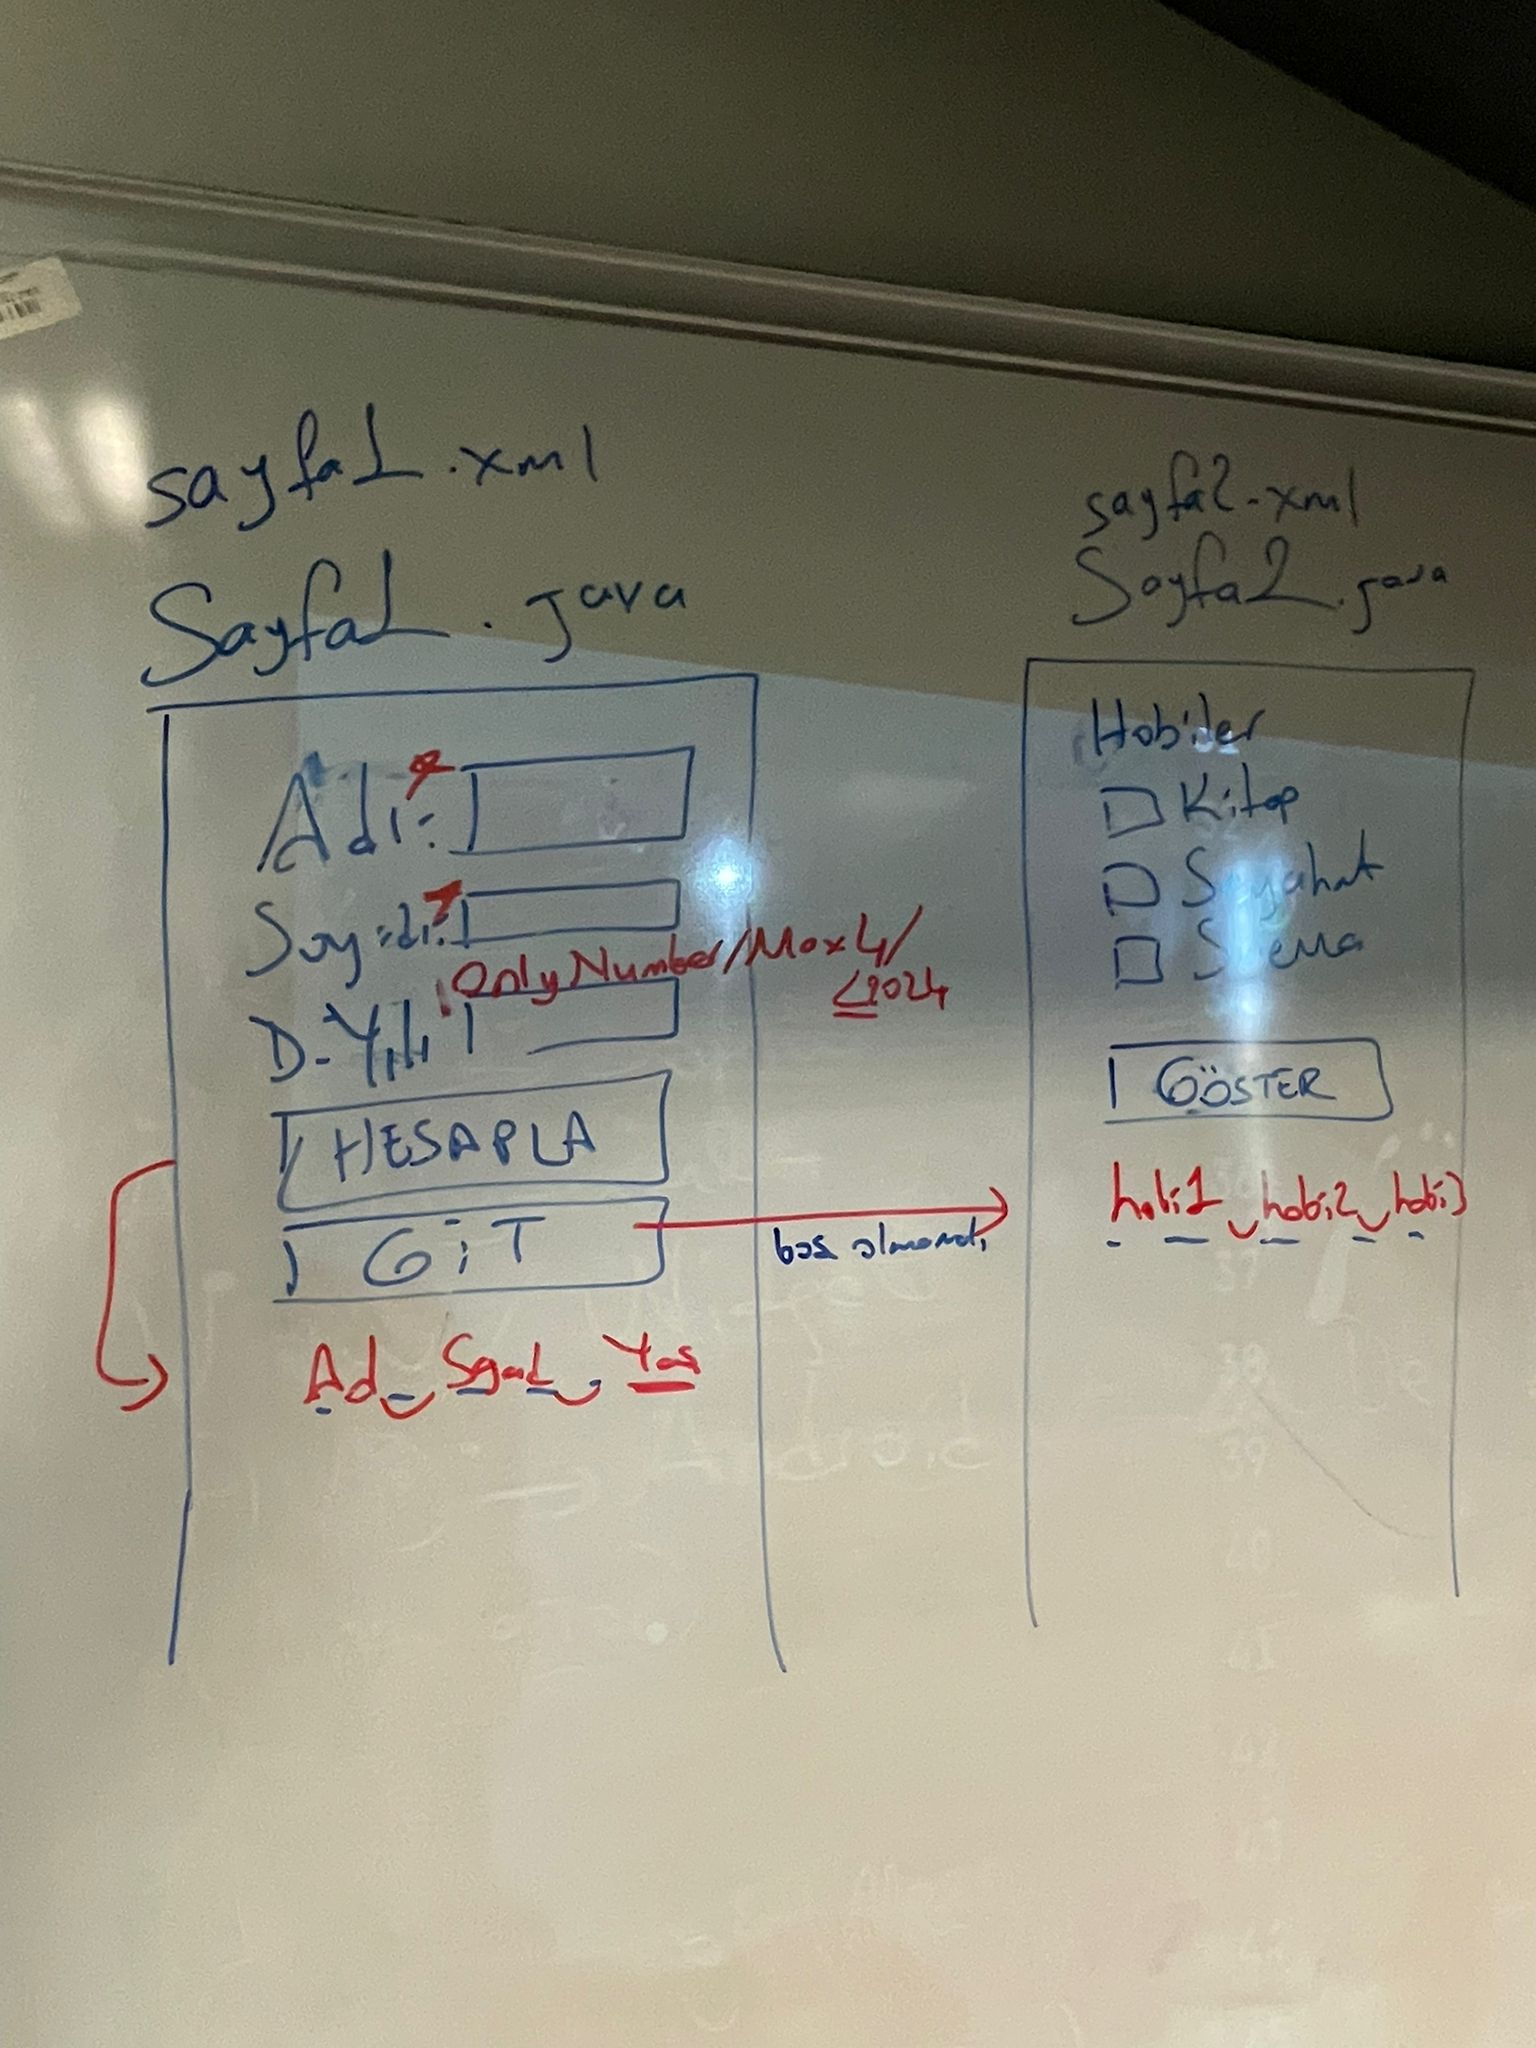 sayfa1.xml
Sayfa1.java
Adı: *
Soyadı: *
Only Number/Max 4/
<2024
D.Yılı
HESAPLA
GİT
Ad Soyad Yas
bos olmamalı
sayfa2.xml
Sayfa2.java
Hobiler
Kitap
Seyahat
Sinema
GÖSTER
hobi1 hobi2 hobi3